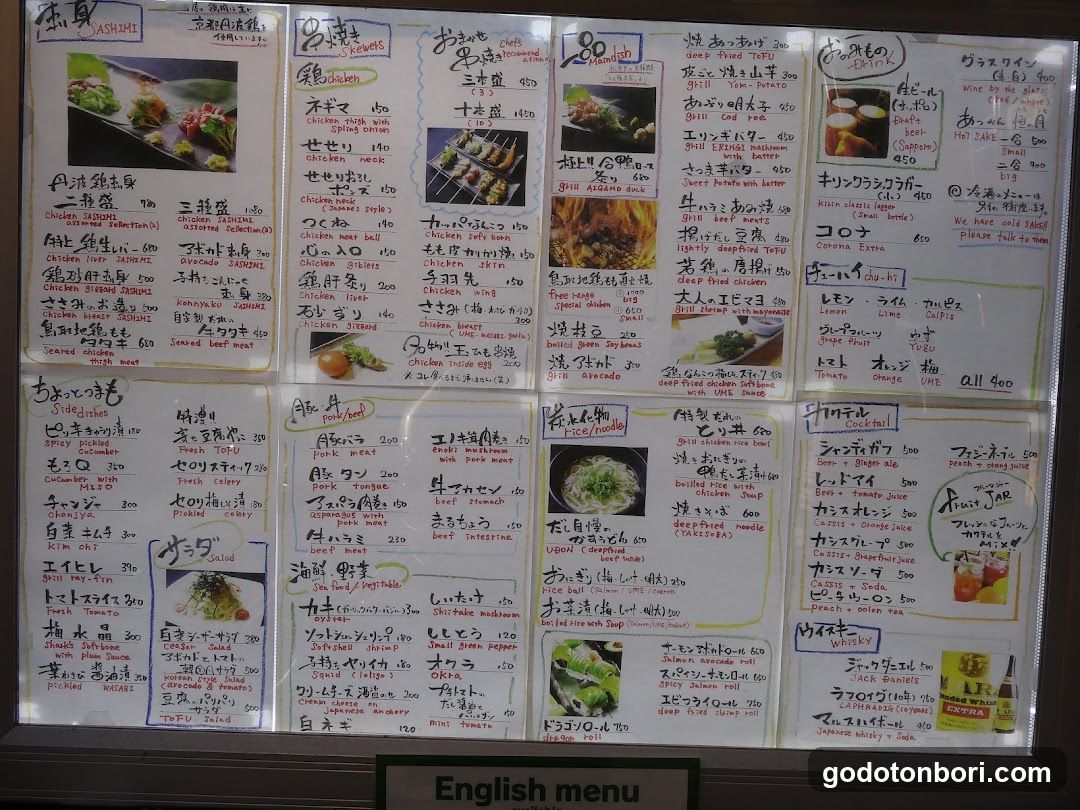 刺身 SASHIMI
京都丹波鶏を
使用しています
丹波鶏刺身
二種盛 780
chicken SASHIMI
assorted selection(2)
特上鶏生レバー 680
chicken liver SASHIMI
鶏砂肝刺身 500
chicken gizzard SASHIMI
ささみのお造り 500
chicken breast SASHIMI
鳥取地鶏もも
タタキ 680
Seared chicken
thigh meat
三種盛 1080
chicken SASHIMI
assorted selection(3)
アボカド刺身 300
avocado SASHIMI
子持ちこんにゃく
刺身 380
konnyaku SASHIMI
自家製だれの
牛タタキ 450
Seared beef meat
串焼き
Skewers
鶏 chicken
ネギマ 150
chicken thigh with
spling onion
せせり 140
chicken neck
せせりおろし
ポンズ 150
chicken neck
(Japanes style)
つくね 140
chicken meat ball
心のハツ 150
chicken giblets
鶏肝炙り 200
chicken liver
石少ずり 140
chicken gizzard
おまかせ
串焼き
chef's
recommendation
三本盛 450
(3)
十本盛 1450
(10)
カッパなんこつ 150
chicken soft born
もも皮カリカリ焼き 150
chicken skin
手羽先 150
chicken wing
ささみ(梅・わさび・ガーリック)
200
chicken breast
(UME・WASABI・garlic)
名物 玉ひも串焼
chicken inside egg 200
品 Maindish
極上!合鴨ロース
炙り 680
grill AIGAMO duck
鳥取地鶏もも直火焼
free range
special chicken
1000
big
650
small
焼枝豆 250
boiled green soybeans
焼アボカド 300
grill avocado
焼あつあげ 300
deep fried TOFU
皮ごと焼き山芋 300
grill Yom-potato
あぶり明太子 450
grill Cod roe
エリンギバター 450
grill ERINGI mashroom
with batter
さつま芋バター 450
Sweet Potato with batter
牛ハラミあみ焼 680
grill beef meats
揚げだし豆腐 480
lightly deepfried TOFU
若鶏の唐揚げ 550
deep fried chicken
大人のエビマヨ 480
grill shrimp with mayonaise
鶏なんこつ梅しそスティック 450
deep fried chicken softbone
with UME sauce
おのみもの
Drink
生ビール
(サッポロ)
Draft
beer
(Sapporo)
450
キリンクラシックラガー
(小) 450
kirin classic lager
(Small bottle)
コロナ 650
corona Extra
グラスワイン
(赤・白) 400
wine by the glass
(red / white)
あつかん 梅の月
HOT SAKE 一合 500
Small
二合 900
big
We have cold SAKE!!
please talk to them
チューハイ chu-hi
レモン・ライム・カルピス
Lemon Lime Calpis
グレープフルーツ ゆず
grape fruit YUZU
トマト オレンジ 梅
Tomato Orange UME
all 400
ちょっとつまも
Side dishes
ピリ辛きゅうり漬 180
Spicy pickled
cucumber
もろQ 350
Cucumber with
MISO
チャンジャ 300
chanjya
白菜キムチ 300
kim chi
エイヒレ 390
grill ray-fin
トマトスライス 350
Fresh Tomato
梅水晶 300
shark's softbone
with plum Sauce
葉わさび醤油漬 350
pickled WASABI
特濃!!
寄せ豆腐やっこ 350
Fresh TOFU
セロリスティック 280
Fresh celery
セロリ梅しそ漬 180
pickled celery
サラダ Salad
白菜シーザーサラダ 380
ceasar Salad
アボカドとトマトの
韓国風サラダ 500
korean style Salad
(avocado & tomato)
豆腐のパリパリ
サラダ 500
TOFU Salad
豚・牛
pork/beef
豚バラ 200
pork meat
豚タン 200
pork tongue
アスパラ肉巻き 150
asparagus with
pork meat
牛ハラミ 230
beef meat
エノキ茸肉巻き 150
enoki mushroom
with pork meat
牛アカセン 150
beef stomach
まるちょう 150
beef intestine
海鮮・野菜
Seafood/Vegitable
カキ(ガーリックバター・ポンジュ) 300
oyster
ソフトシェルシュリンプ 180
Softshell shrimp
子持ちヤリイカ 180
squid (loligo)
クリームチーズ酒盗のせ 200
cream cheese on
japanese anchory
白ネギ 120
しいたけ 150
Shiitake mashroom
ししとう 120
Small green pepper
オクラ 150
okra
プチトマトの
だし醤油と
150
mini tomato
炭水化物
rice/noodle
だし自慢の
かすうどん 650
UDON (deepfried
beef inside)
おにぎり(梅・しゃけ・明太) 250
rice ball (Salmon/UME/codroe)
お茶漬(梅・しゃけ・明太) 500
boiled rice with Soup (Salmon/UME/codroe)
特製だれの
とり丼 680
grill chicken rice bowl
焼きおにぎりの
鴨だし茶漬 680
boiled rice with
chicken Soup
焼きそば 600
deepfried noodle
(YAKISOBA)
ドラゴンロール 750
dragon roll
サーモンアボカドロール 650
Salmon avocado roll
スパイシーサーモンロール 650
Spicy Salmon roll
エビフライロール 750
deep fried shrimp roll
カクテル
Cocktail
シャンディガフ 500
Beer + ginger ale
レッドアイ 500
Beer + tomato juice
カシスオレンジ 500
Cassis + Orange juice
カシスグレープ 500
Cassis + Grapefruit juice
カシスソーダ 500
Cassis + Soda
ピーチウーロン 500
peach + oolon tea
ファジーネーブル 500
peach + orange juice
フルーツジャー
fruit JAR
フレッシュなフルーツと
カクテルを
Mix♪
ウイスキー
whisky
ジャックダニエル 500
JACK Daniels
ラフロイグ(10年) 750
LAPHRAOIG (10years)
マルスハイボール 450
Japanese whisky + Soda
EXTRA
English menu
available
godotonbori.com